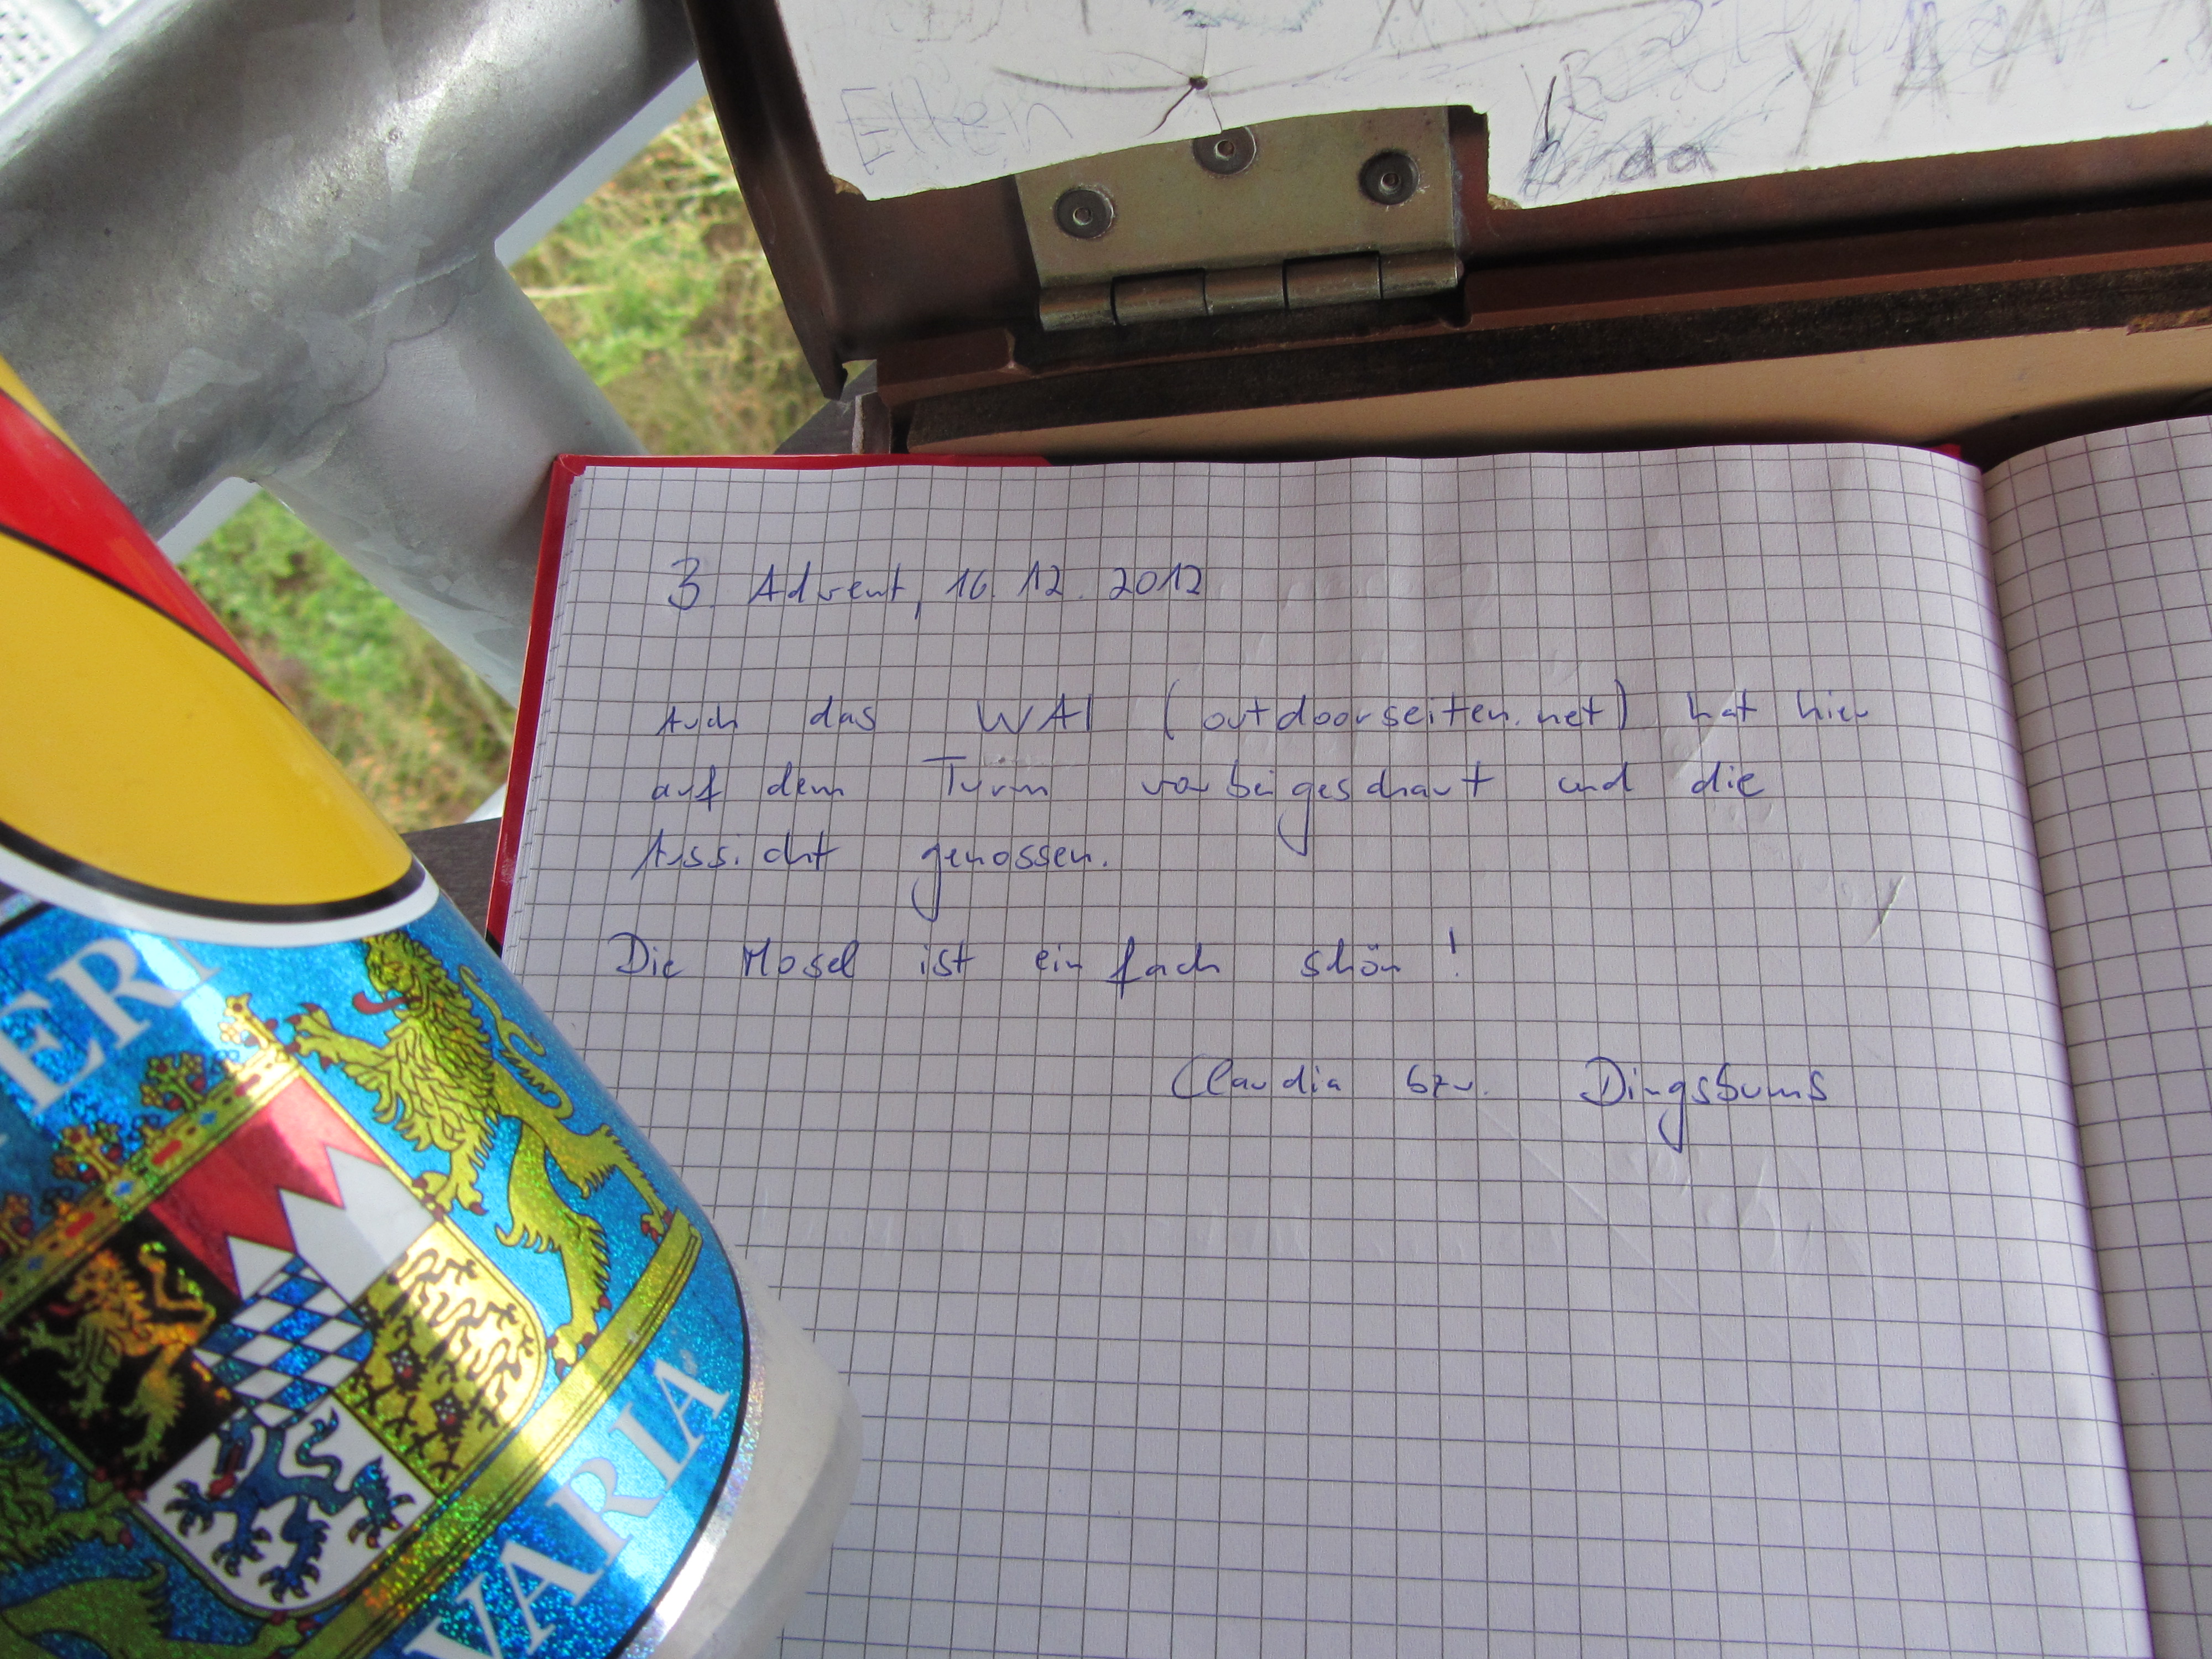 Ellen
3. Advent, 16.12.2012
Auch das WAI (outdoorseiten.net) hat hier
auf dem Turm vorbeigeschaut und die
Aussicht genossen.
Die Mosel ist einfach schön!
Claudia bzw. Dingsbums
ERN
VARIA